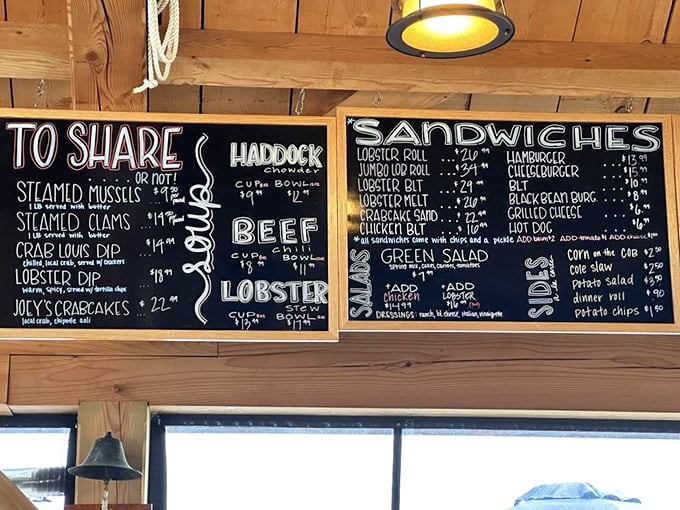 TO SHARE
OR NOT!
STEAMED MUSSELS $9
1 LB served with butter
STEAMED CLAMS $14
1 LB served with butter
CRAB LOUIS DIP $14 99
chilled, local crab, served w/ crackers
LOBSTER DIP $18 99
warm, spicy, served w/ tortilla chips
JOEY'S CRABCAKES .. $22 99
local crab, chipotle aoli
soup
HADDOCK
Chowder
CUP BOWL
$9 99 $12 99
BEEF
Chili
CUP BOWL
$8 99 $11 99
LOBSTER
STEW
CUP BOWL
$13 99 $17 99
*SANDWICHES
LOBSTER ROLL ...$26 99
JUMBO LOB ROLL ...$34 99
LOBSTER BLT ...$29 99
LOBSTER MELT ...$26 99
CRABCAKE SAND ...$22 99
CHICKEN BLT ...$16 99
HAMBURGER ...$13 99
CHEESEBURGER ...$15 99
BLT ...$10 99
BLACK BEAN BURG. ..$8 99
GRILLED CHEESE ...$6 99
HOT DOG ...$6 99
*all sandwiches come with chips and a pickle ADD bacon $2 ADD tomato $1 ADD
SALADS
GREEN SALAD
spring mix, cukes, carrots, tomatoes
$7 99
+ADD
chicken
$14 99
+ADD
LOBSTER
$16 99
DRESSINGS: ranch, bl cheese, italian, vinaigrette
SIDES
a la carte
corn on the COB $2 50
cole slaw $2 50
potato salad $3 50
dinner roll $ .90
potato chips $1 50